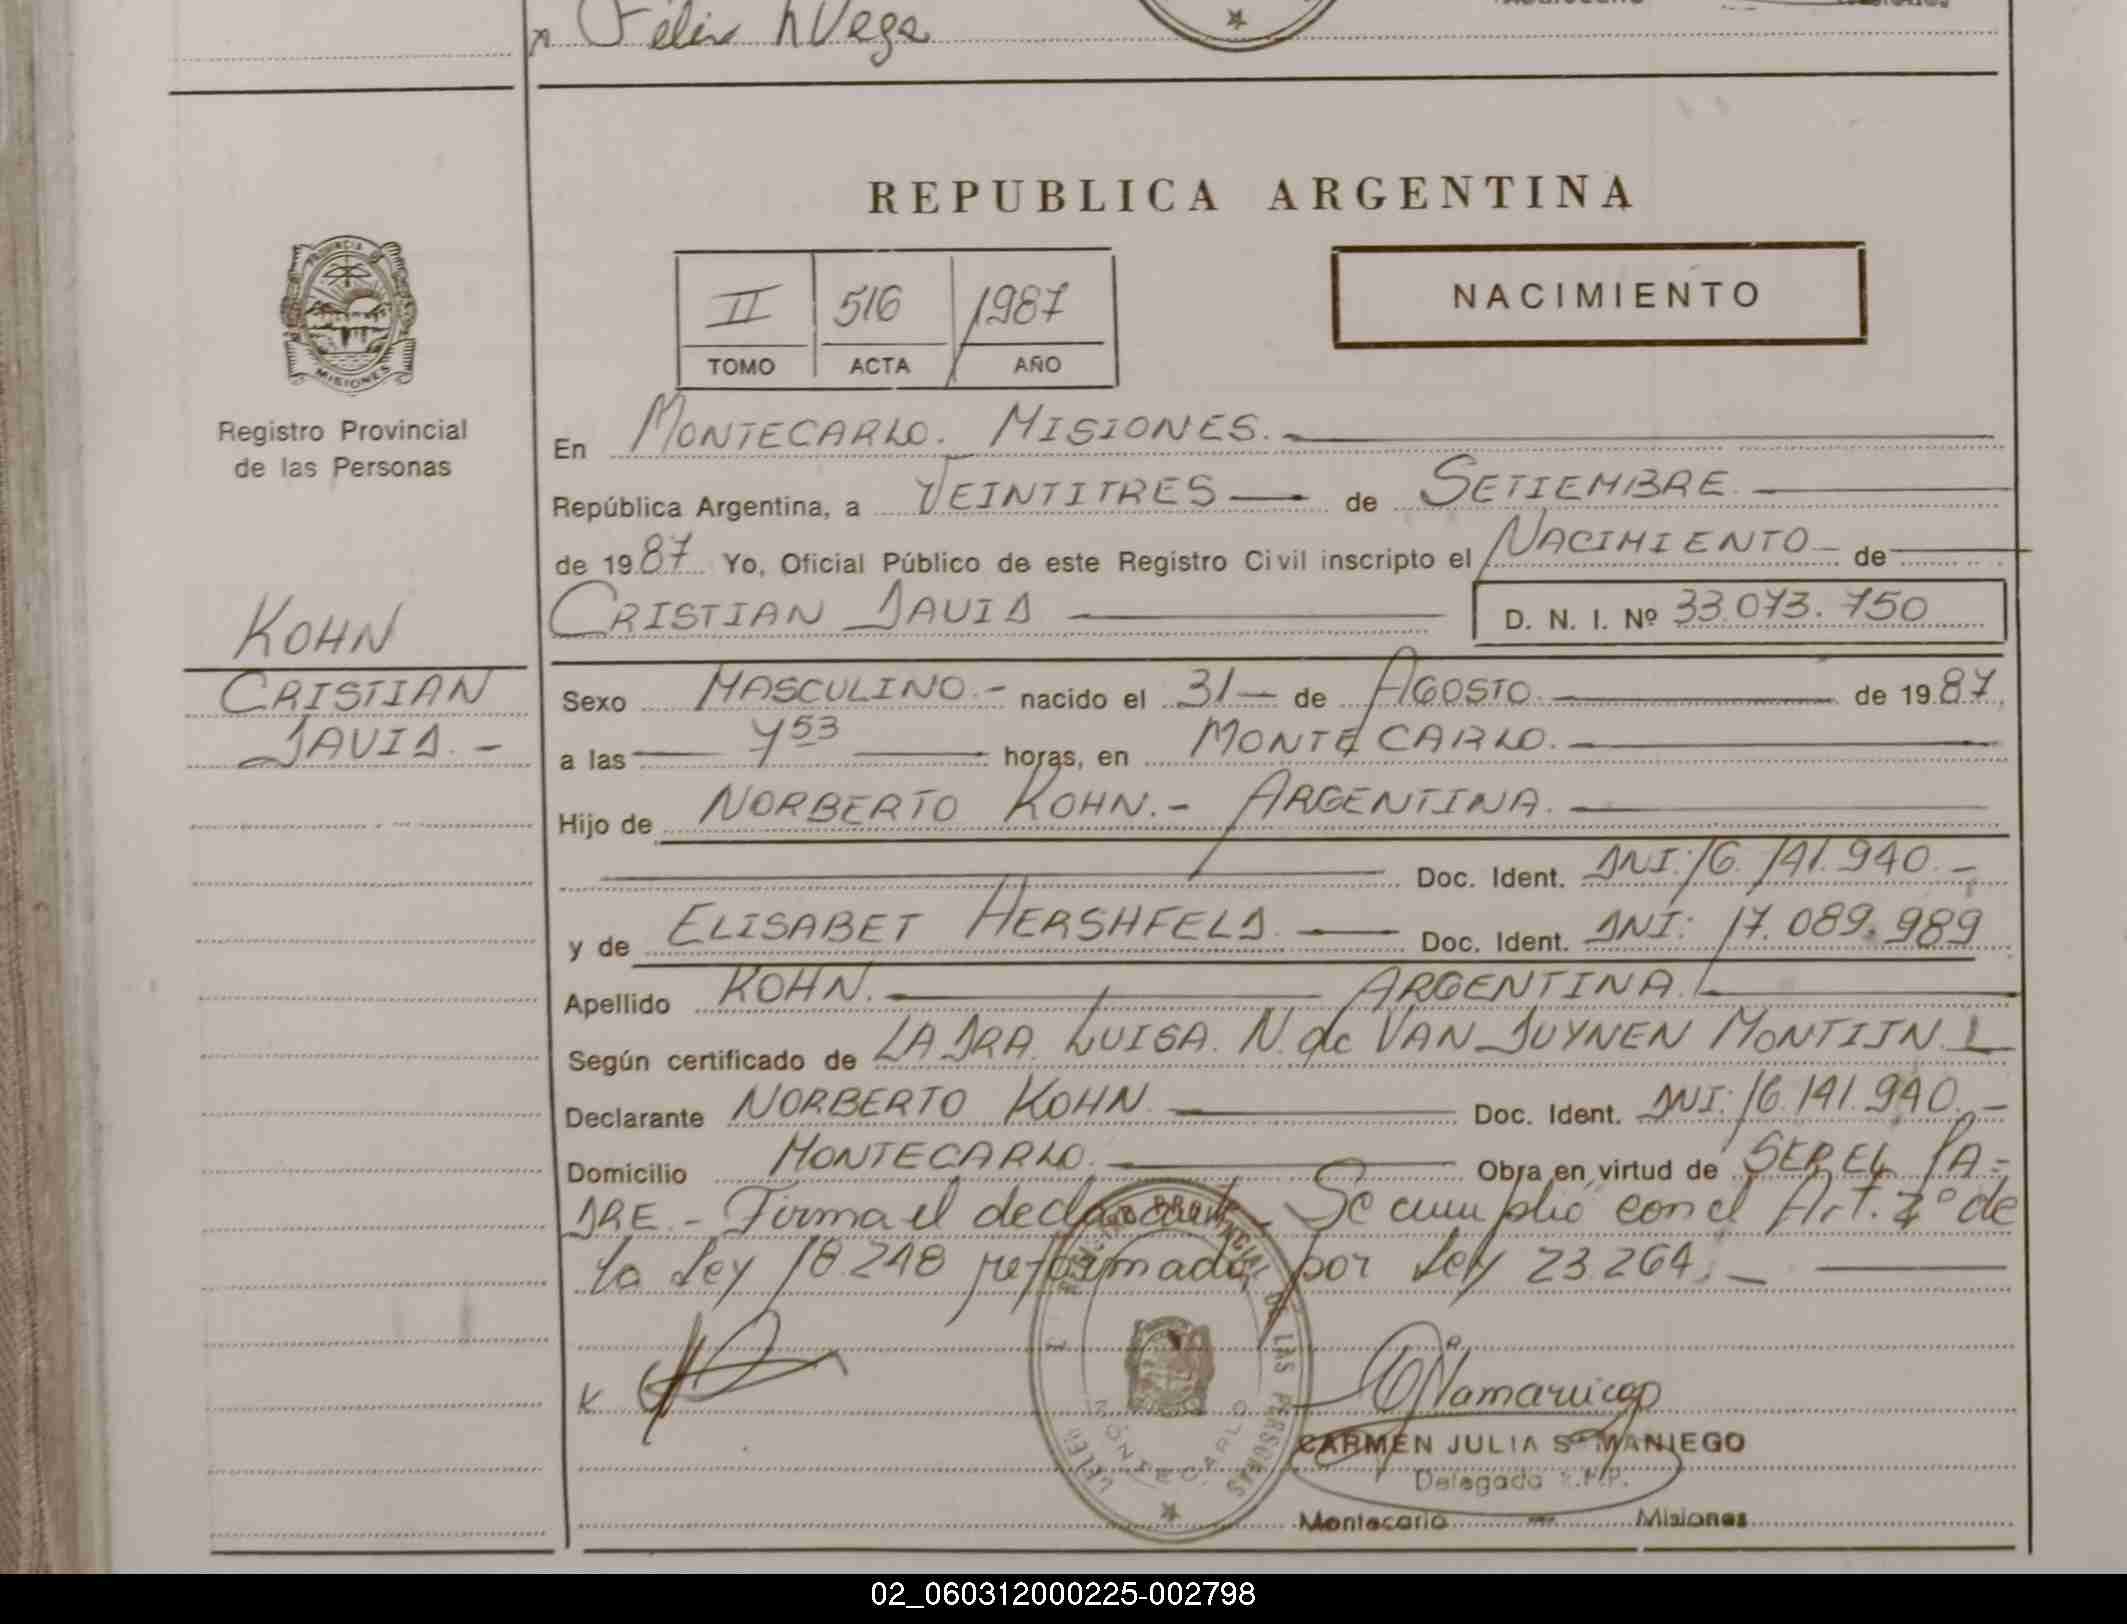 Félix A Vega
REPUBLICA ARGENTINA
PROVINCIA
MISIONES
II 516 1987
TOMO ACTA AÑO
NACIMIENTO
Registro Provincial
de las Personas
KOHN
CRISTIAN
DAVID.-
En MONTECARLO. MISIONES.
República Argentina, a VEINTITRES de SETIEMBRE.
de 1987 Yo, Oficial Público de este Registro Civil inscripto el NACIMIENTO de
CRISTIAN DAVID D. N. I. Nº 33.073.750
Sexo MASCULINO.- nacido el 31 de AGOSTO. de 1987
a las 453 horas, en MONTECARLO.
Hijo de NORBERTO KOHN.- ARGENTINA.
Doc. Ident. DNI: 16.141.940.-
y de ELISABET HERSHFELD. Doc. Ident. DNI: 17.089.989
Apellido KOHN. ARGENTINA.
Según certificado de LA DRA. LUISA. N. de VAN DUYNEN MONTIJN.
Declarante NORBERTO KOHN. Doc. Ident. DNI: 16.141.940.-
Domicilio MONTECARLO. Obra en virtud de SER EL PA=
DRE.- Firma el declarante. Se cumplió con el Art. 2º de
la Ley 18.248 reformada por Ley 23.264.-
REGISTRO PROVINCIAL DE LAS PERSONAS
MONTECARLO
CARMEN JULIA SAMANIEGO
Delegada R.P.P.
Montecarlo - Misiones
02_060312000225-002798